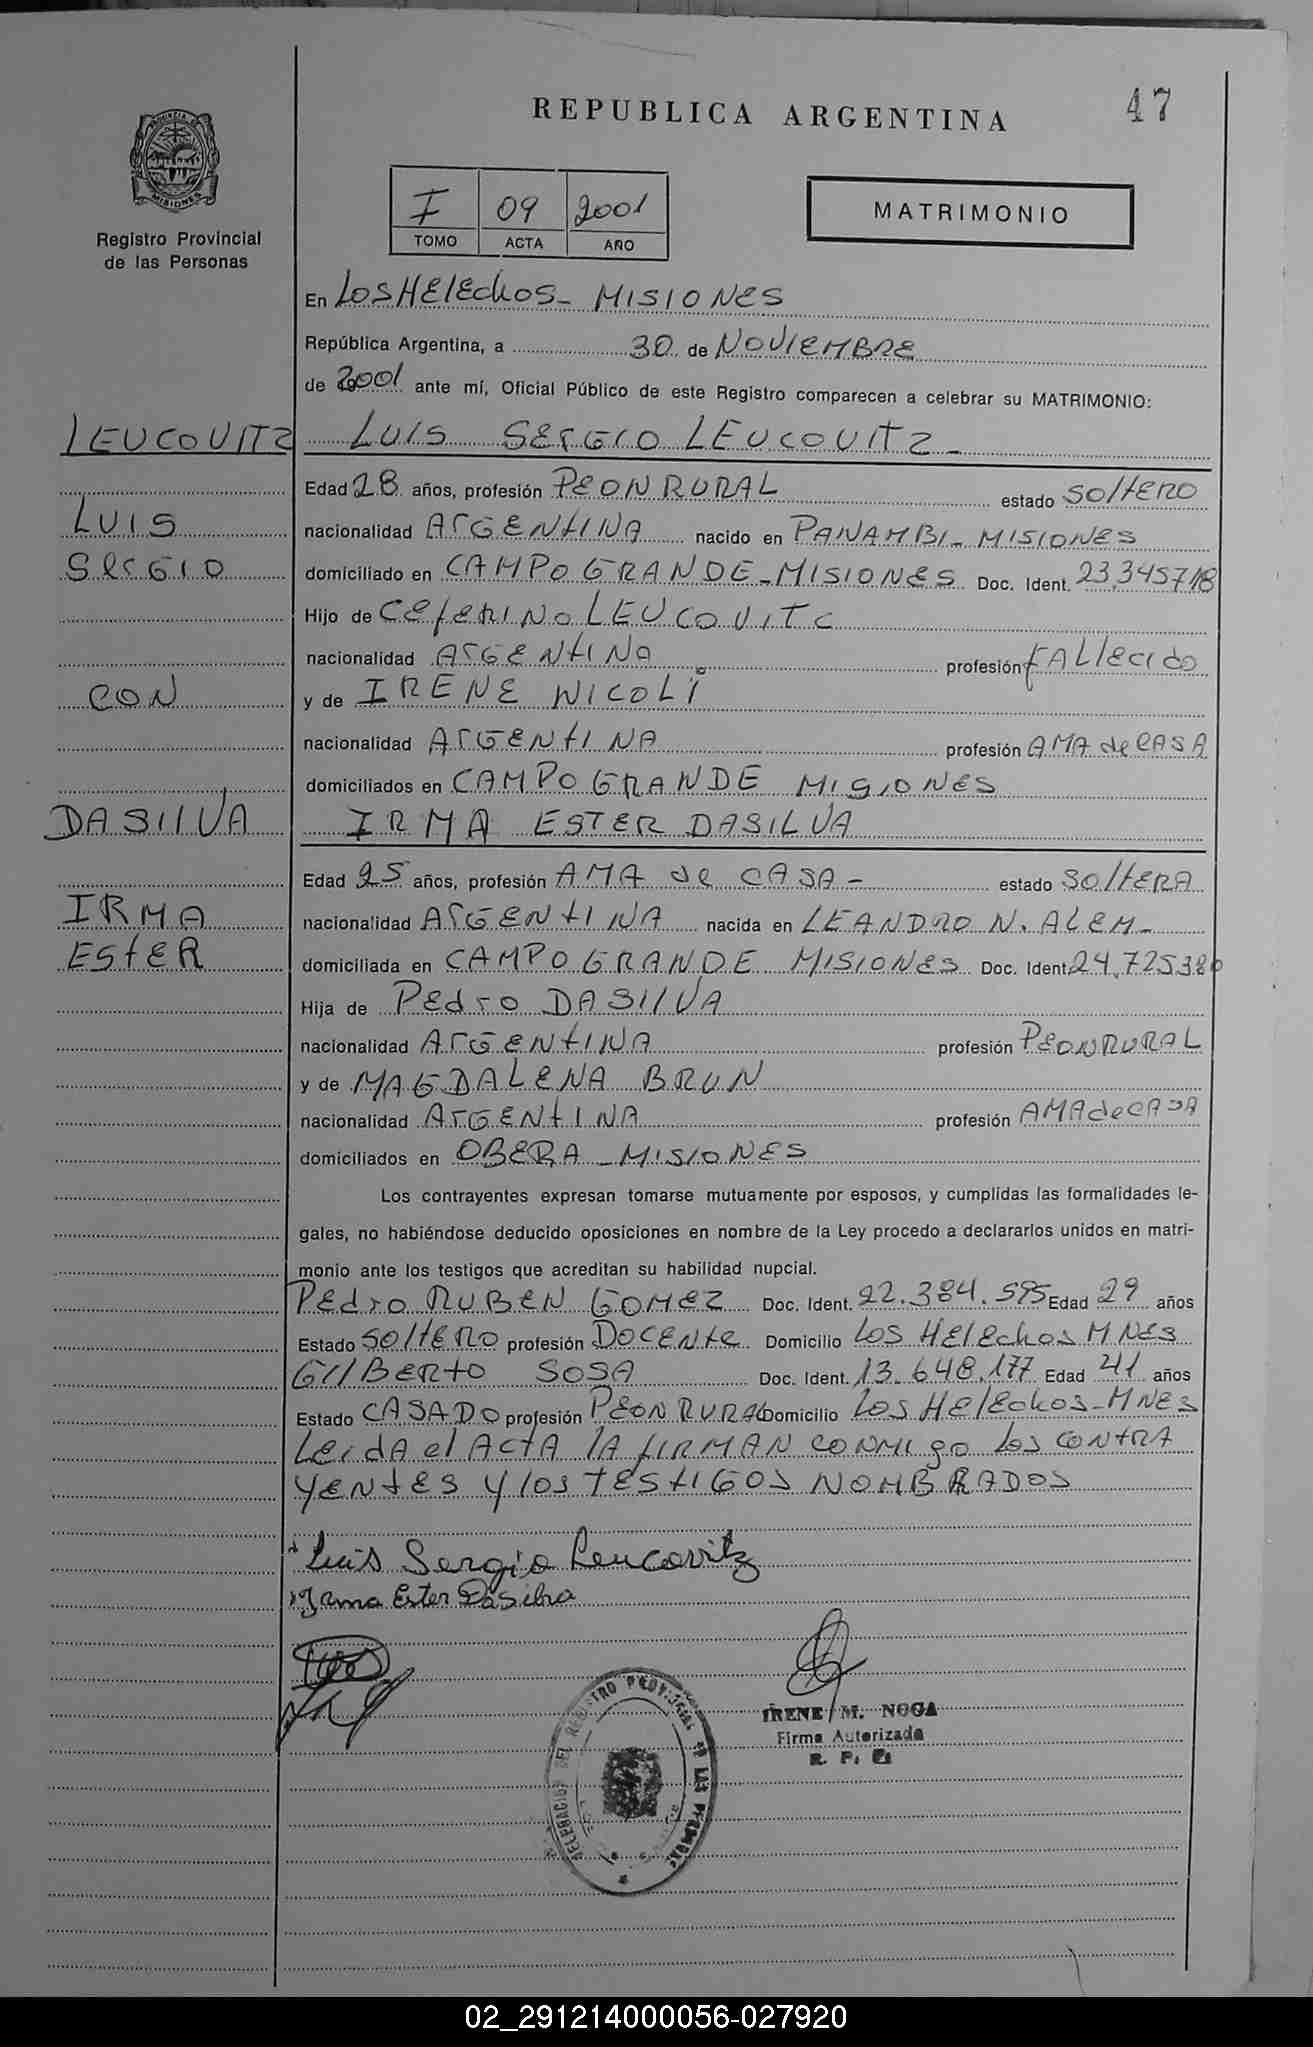 47
REPUBLICA ARGENTINA
PROVINCIA DE
MISIONES
Registro Provincial
de las Personas
I 09 2001
TOMO ACTA AÑO
MATRIMONIO
En LOS HElEchos - MISIONES
República Argentina, a 30 de NOVIEMBRE
de 2001 ante mí, Oficial Público de este Registro comparecen a celebrar su MATRIMONIO:
LEUCOVITZ LUIS SERGIO LEUCOVITZ -
Edad 28 años, profesión PEON RURAL estado SOltERO
LUIS nacionalidad ARGENtINA nacido en PANAMBI - MISIONES
SERGIO domiciliado en CAMPO GRANDE - MISIONES Doc. Ident. 23.345718
Hijo de CEfERINO LEUCOVITC
nacionalidad ARGENtINA profesión fALlEcido
CON y de IRENE NICOLI
nacionalidad ARGENtINA profesión AMA de CASA
domiciliados en CAMPO GRANDE MISIONES
DASIlVA IRMA ESTER DASILVA
Edad 25 años, profesión AMA de CASA - estado SOltERA
IRMA nacionalidad ARGENtINA nacida en LEANDRO N. ALEM -
EStER domiciliada en CAMPO GRANDE MISIONES Doc. Ident. 24.725380
Hija de PEdro DASIlVA
nacionalidad ARGENtINA profesión PEON RURAL
y de MAGDALENA BRUN
nacionalidad ARGENtINA profesión AMA de CASA
domiciliados en OBERA - MISIONES
Los contrayentes expresan tomarse mutuamente por esposos, y cumplidas las formalidades le-
gales, no habiéndose deducido oposiciones en nombre de la Ley procedo a declararlos unidos en matri-
monio ante los testigos que acreditan su habilidad nupcial.
PEdro RUBEN GOMEZ Doc. Ident. 22.384.595 Edad 29 años
Estado SOltERO profesión DOCENtE Domicilio LOS HElEchos MNES
GIlBERtO SOSA Doc. Ident. 13.648.177 Edad 41 años
Estado CASADO profesión PEON RURAL Domicilio LOS HElEchos - MNES
LEidA el ActA lA fIRMAN CONMIgo los CONtRA
YENtES y los TEStIGOS NOMBRADOS
Luis Sergio Leucovitz
Irma Ester DaSilva
IRENE M. NOGA
Firma Autorizada
R. P. P.
DELEGACION DEL REGISTRO PROVINCIAL DE LAS PERSONAS
02_291214000056-027920